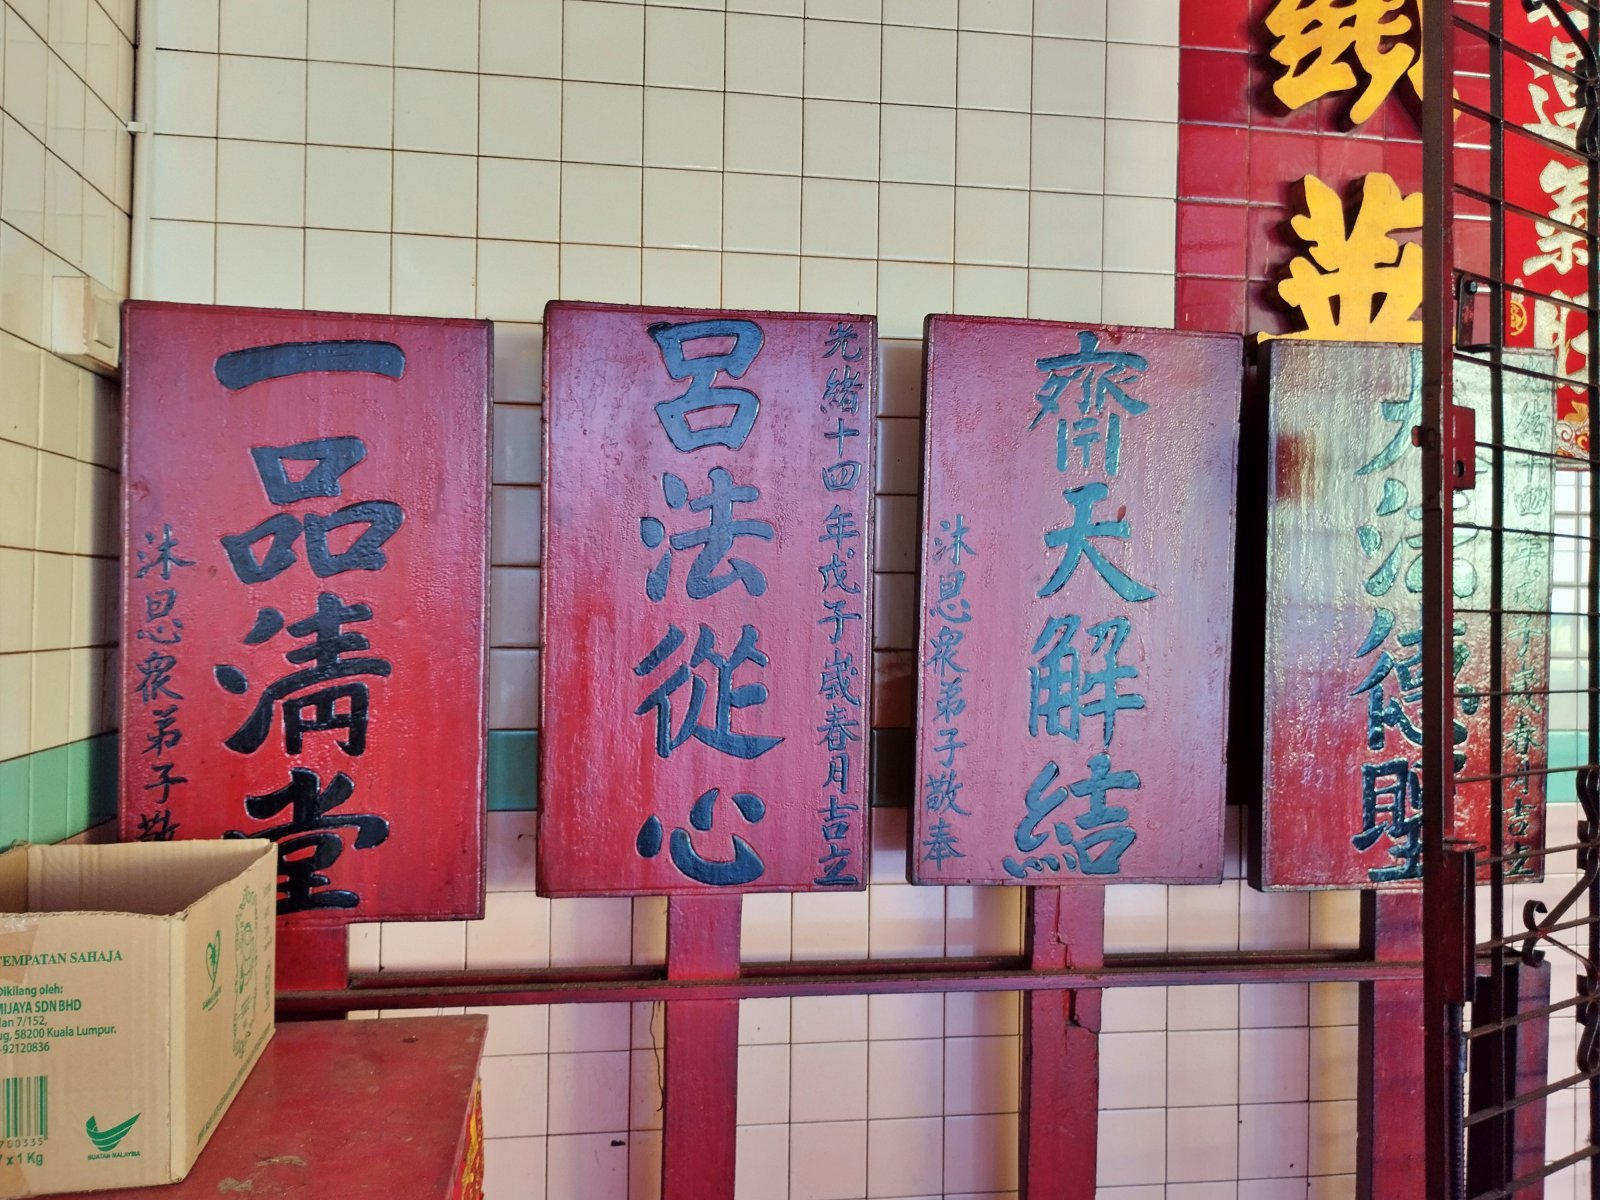 一品清堂
沐恩眾弟子敬
光緒十四年戊子歲春月吉立
呂法從心
齊天解結
沐恩眾弟子敬奉
緒十四年戊子歲春月吉立
法德聖
TEMPATAN SAHAJA
Dikilang oleh:
MIJAYA SDN BHD
lan 7/152,
ug, 58200 Kuala Lumpur.
-92120836
700335
7 x 1 Kg
BUATAN MALAYSIA